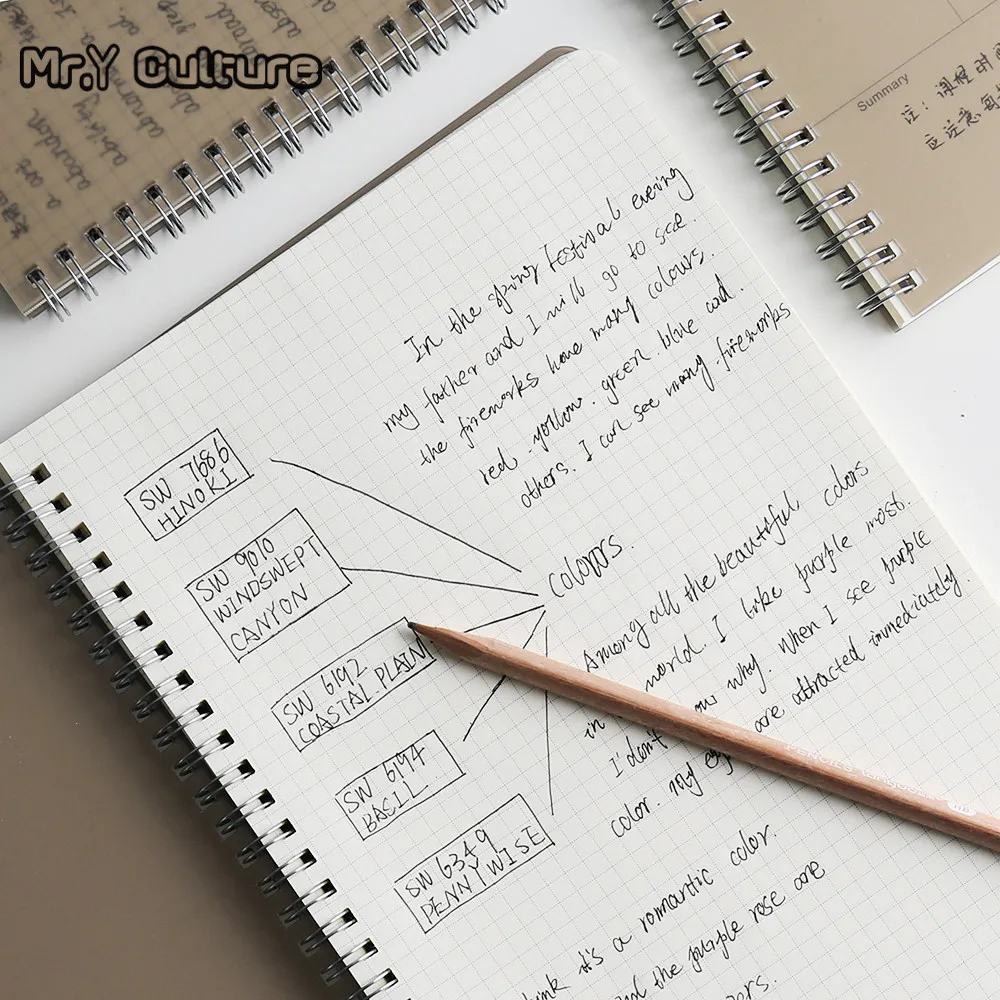 Mr.Y Culture
a art
abandon
ability
abnormal
Summary
注：课程时
应注意
In the spring festival evening
my father and I will go to see.
the fireworks have many colours.
red. yollow. green. blue and.
others. I can see many fireworks
SW 7686
HINOKI
SW 9010
WINDSWEPT
CANYON
SW 6192
COASTAL PLAIN
SW 6194
BASIL
SW 6349
PENNYWISE
colors.
Among all the beautiful colors
in world. I like purple most.
I don't why. When I see purple
color. my are attracted immediately.
it's a romantic color.
the purple rose are